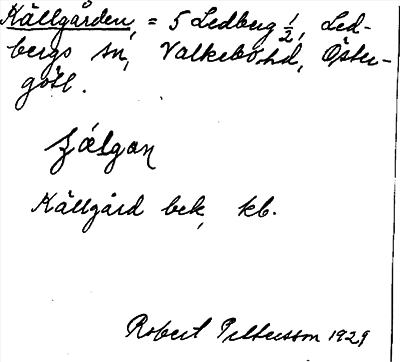 Källgården, = 5 Ledberg 1/2, Led-
bergs sn, Valkebo hd, Öster-
götl.
Källgård bek, kb.
Robert Pettersson 1929